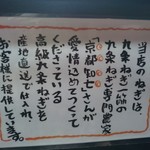 当店のねぎは
九条ねぎ一筋の
九条ねぎ専門農家
「京都知七」さんが
愛情込めてつくって
くださっている
高級九条ねぎを
産地直送で仕入れ
お客様に提供しています。